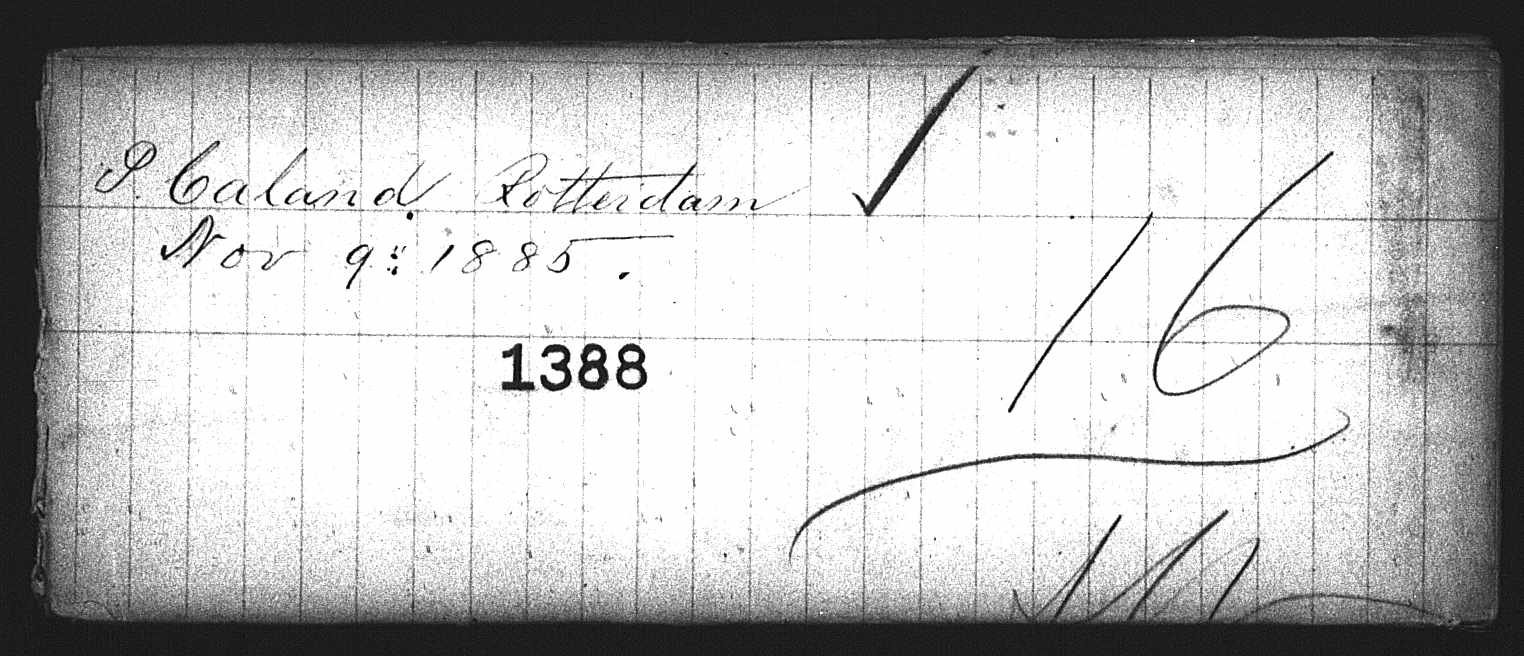 P. Caland. Rotterdam
Nov 9: 1885.
16
1388